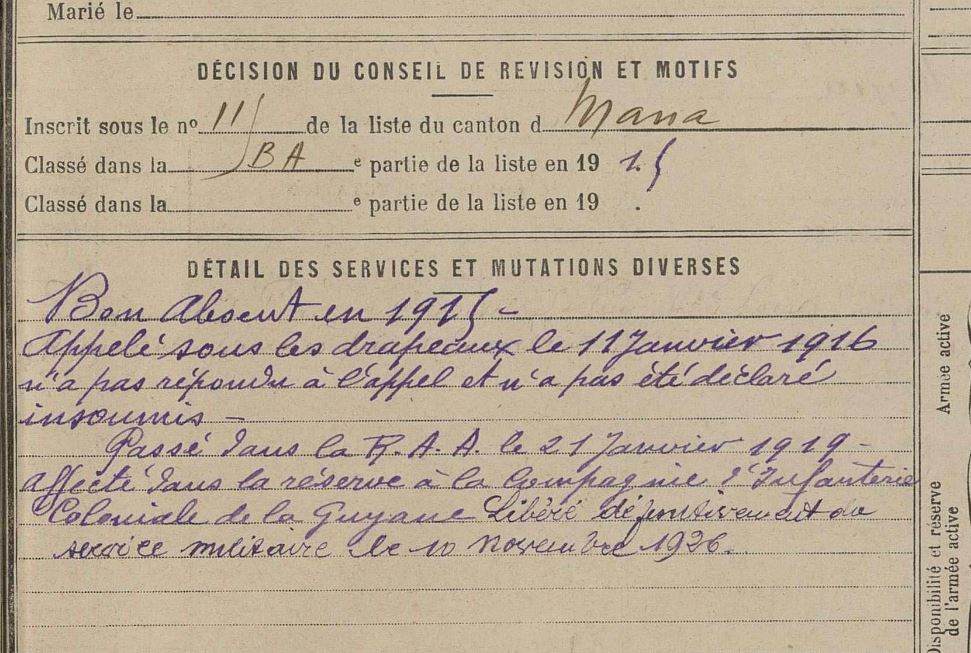 Marié le
DÉCISION DU CONSEIL DE REVISION ET MOTIFS
Inscrit sous le nº 11 de la liste du canton d Mana
Classé dans la BA e partie de la liste en 19 15
Classé dans la e partie de la liste en 19 .
DÉTAIL DES SERVICES ET MUTATIONS DIVERSES
Bon Absent en 1915 -
Appelé sous les drapeaux le 11 Janvier 1916
n'a pas répondu à l'appel et n'a pas été déclaré
insoumis -
Passé dans la R. A. A. le 21 Janvier 1919 -
affecté dans la réserve à la Compagnie d'Infanterie
Coloniale de la Guyane Libéré définitivement du
service militaire le 10 Novembre 1926.
Armée active
Disponibilité et réserve
de l'armée active